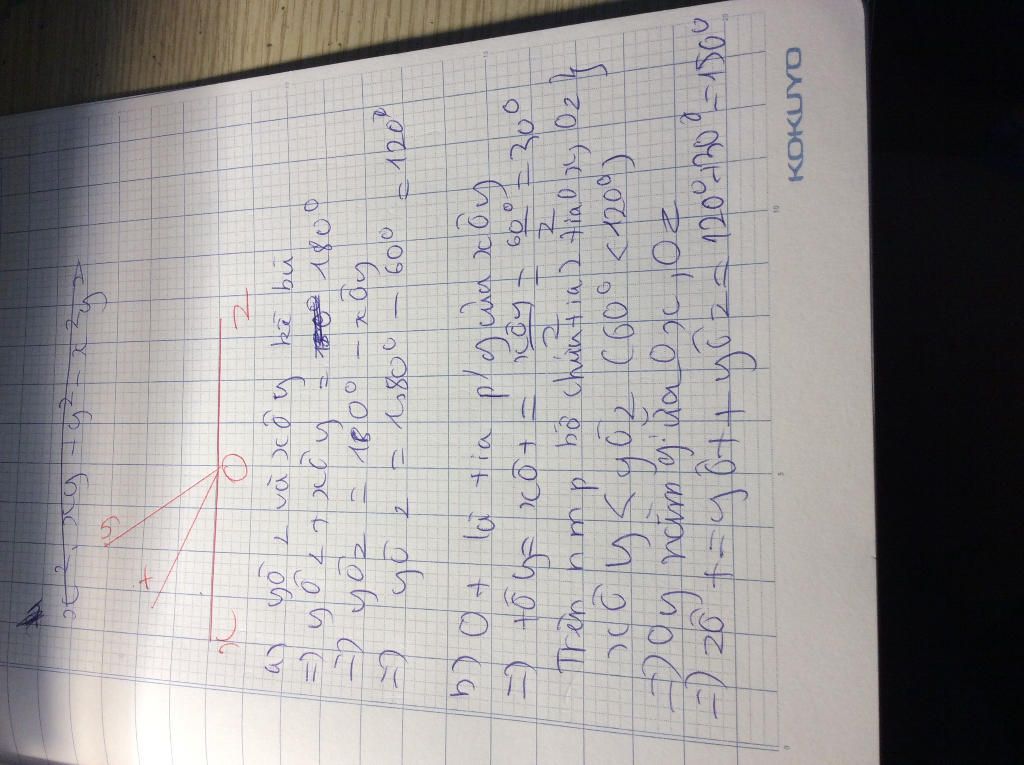 x² - xy + y² - x²y
y
t
x
O
z
a) yôz và xôy kề bù
=) yôz + xôy = 180°
=) yôz = 180° - xôy
=) yôz = 180° - 60° = 120°
b) Ot là tia p/g của xôy
=) tôy = xôt = xôy/2 = 60°/2 = 30°
Trên nmp bờ chứa tia 2 tia Ox, Oz
xôy < yôz (60° < 120°)
=) Oy nằm giữa Ox, Oz
=) zôt = yôt + yôz = 120° + 30° = 150°
KOKUYO
5
10